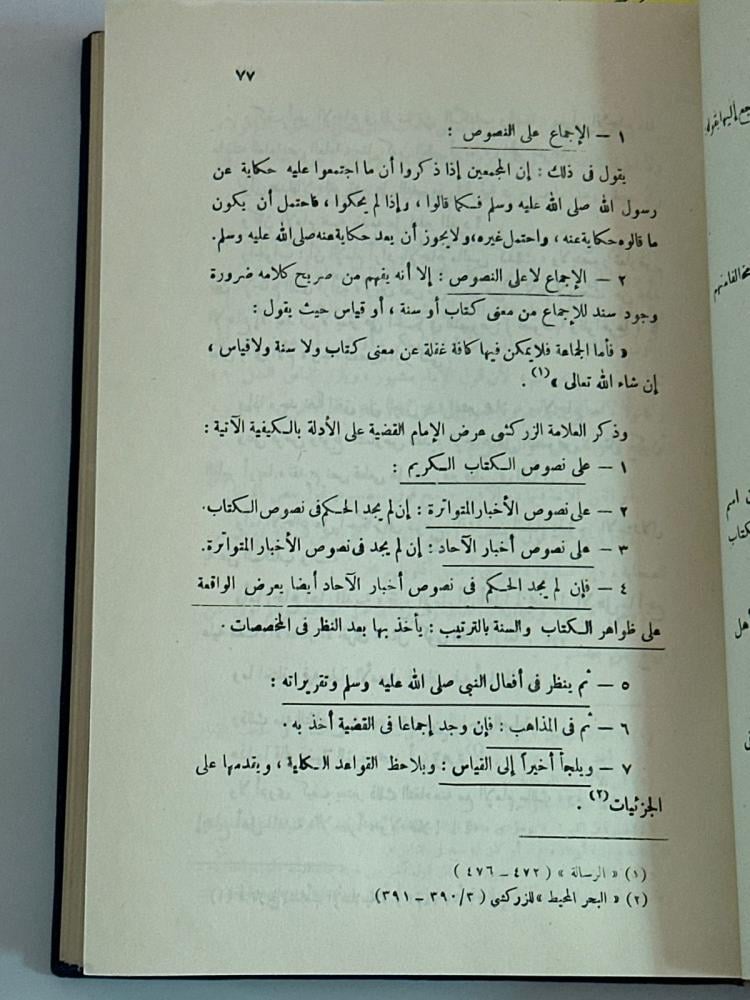 ٧٧
١ – الإجماع على النصوص :
يقول فى ذلك : إن المجمعين إذا ذكروا أن ما اجتمعوا عليه حكاية عن
رسول الله صلى الله عليه وسلم فكما قالوا ، وإذا لم يحكوا ، فاحتمل أن يكون
ما قالوه حكاية عنه ، واحتمل غيره، ولا يجوز أن يعد حكاية عنه صلى الله عليه وسلم.
٢ – الإجماع لا على النصوص : إلا أنه يفهم من صريح كلامه ضرورة
وجود سند للإجماع من معنى كتاب أو سنة ، أو قياس حيث يقول :
« فأما الجماعة فلا يمكن فيها كافة غفلة عن معنى كتاب ولا سنة ولا قياس ،
إن شاء الله تعالى »(١) .
وذكر العلامة الزركشى عرض الإمام القضية على الأدلة بالكيفية الآتية :
١ – على نصوص الكتاب الكريم :
٢ – على نصوص الأخبار المتواترة : إن لم يجد الحكم فى نصوص الكتاب.
٣ – على نصوص أخبار الآحاد : إن لم يجد فى نصوص الأخبار المتواترة.
٤ – فإن لم يجد الحكم فى نصوص أخبار الآحاد أيضا يعرض الواقعة
على ظواهر الكتاب والسنة بالترتيب : يأخذ بها بعد النظر فى المخصصات .
٥ – ثم ينظر فى أفعال النبى صلى الله عليه وسلم وتقريراته :
٦ – ثم فى المذاهب : فإن وجد إجماعا فى القضية أخذ به .
٧ – ويلجأ أخيراً إلى القياس : ويلاحظ القواعد الكلية ، ويقدمها على
الجزئيات(٢) .
(١) « الرسالة » ( ٤٧٢ – ٤٧٦ )
(٢) « البحر المحيط » للزركشى ( ٣/ ٣٩٠ – ٣٩١)